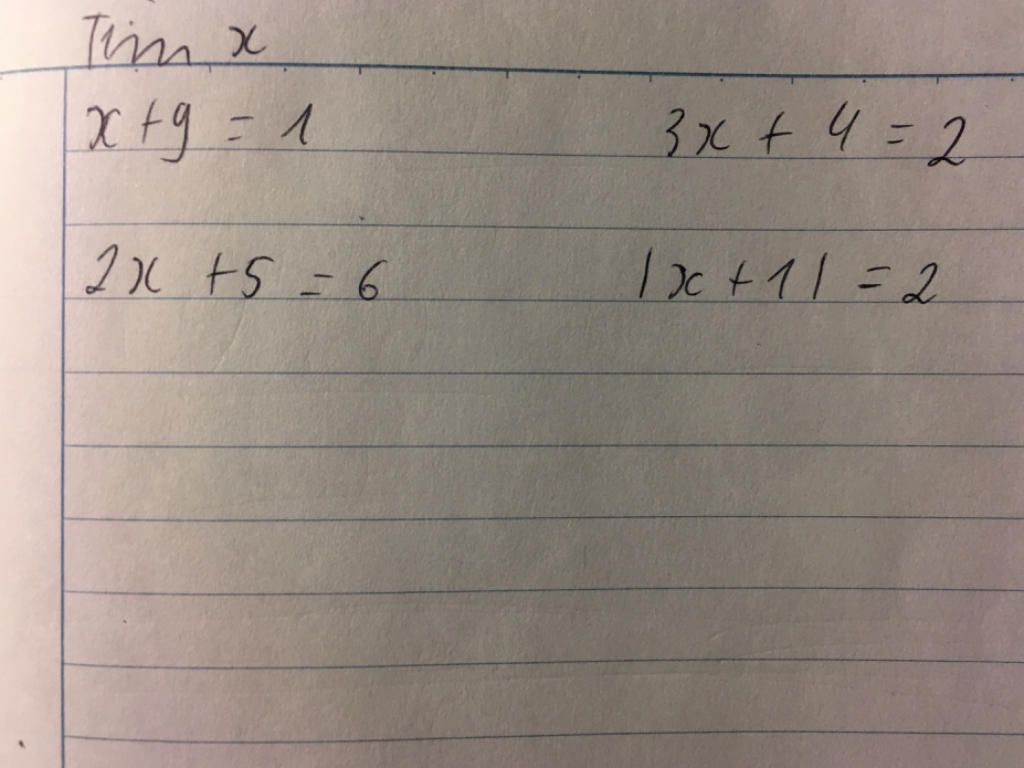 Tìm x
x + 9 = 1
3x + 4 = 2
2x + 5 = 6
|x + 1| = 2